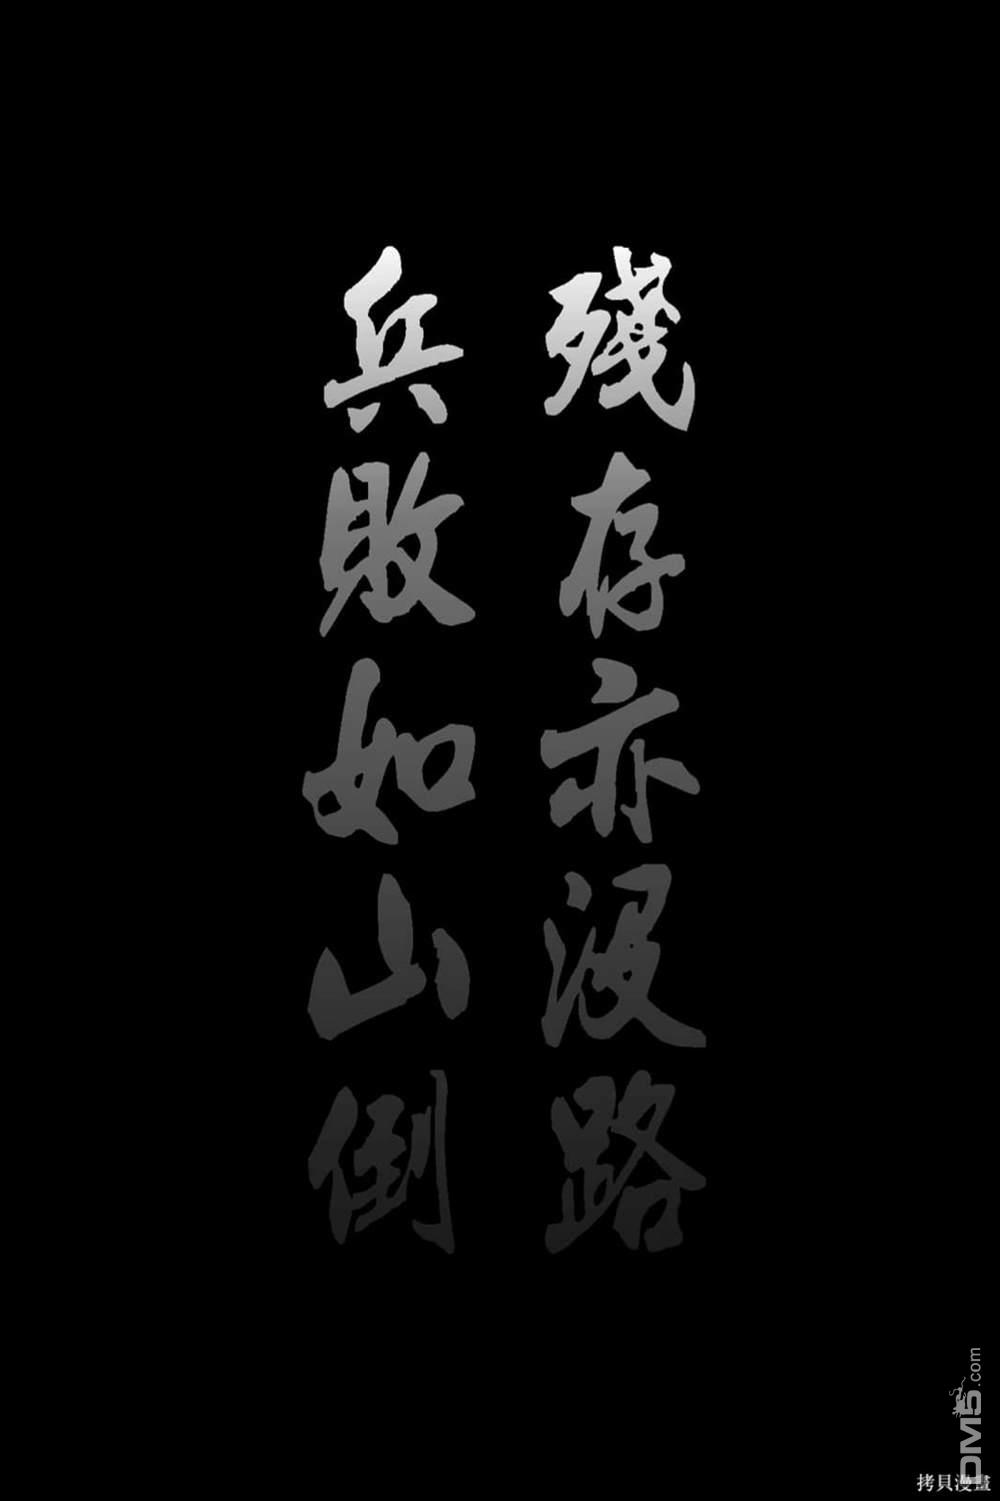 殘存亦沒路
兵敗如山倒
DM5.com
拷貝漫畫